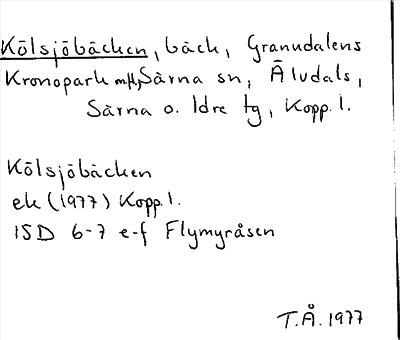 Kölsjöbäcken, bäck, Granudalens
Kronopark mfl, Särna sn, Älvdals,
Särna o. Idre tg, Kopp. l.
Kölsjöbäcken
ek (1977) Kopp. l.
ISD 6-7 e-f Flymyråsen
T.Å. 1977